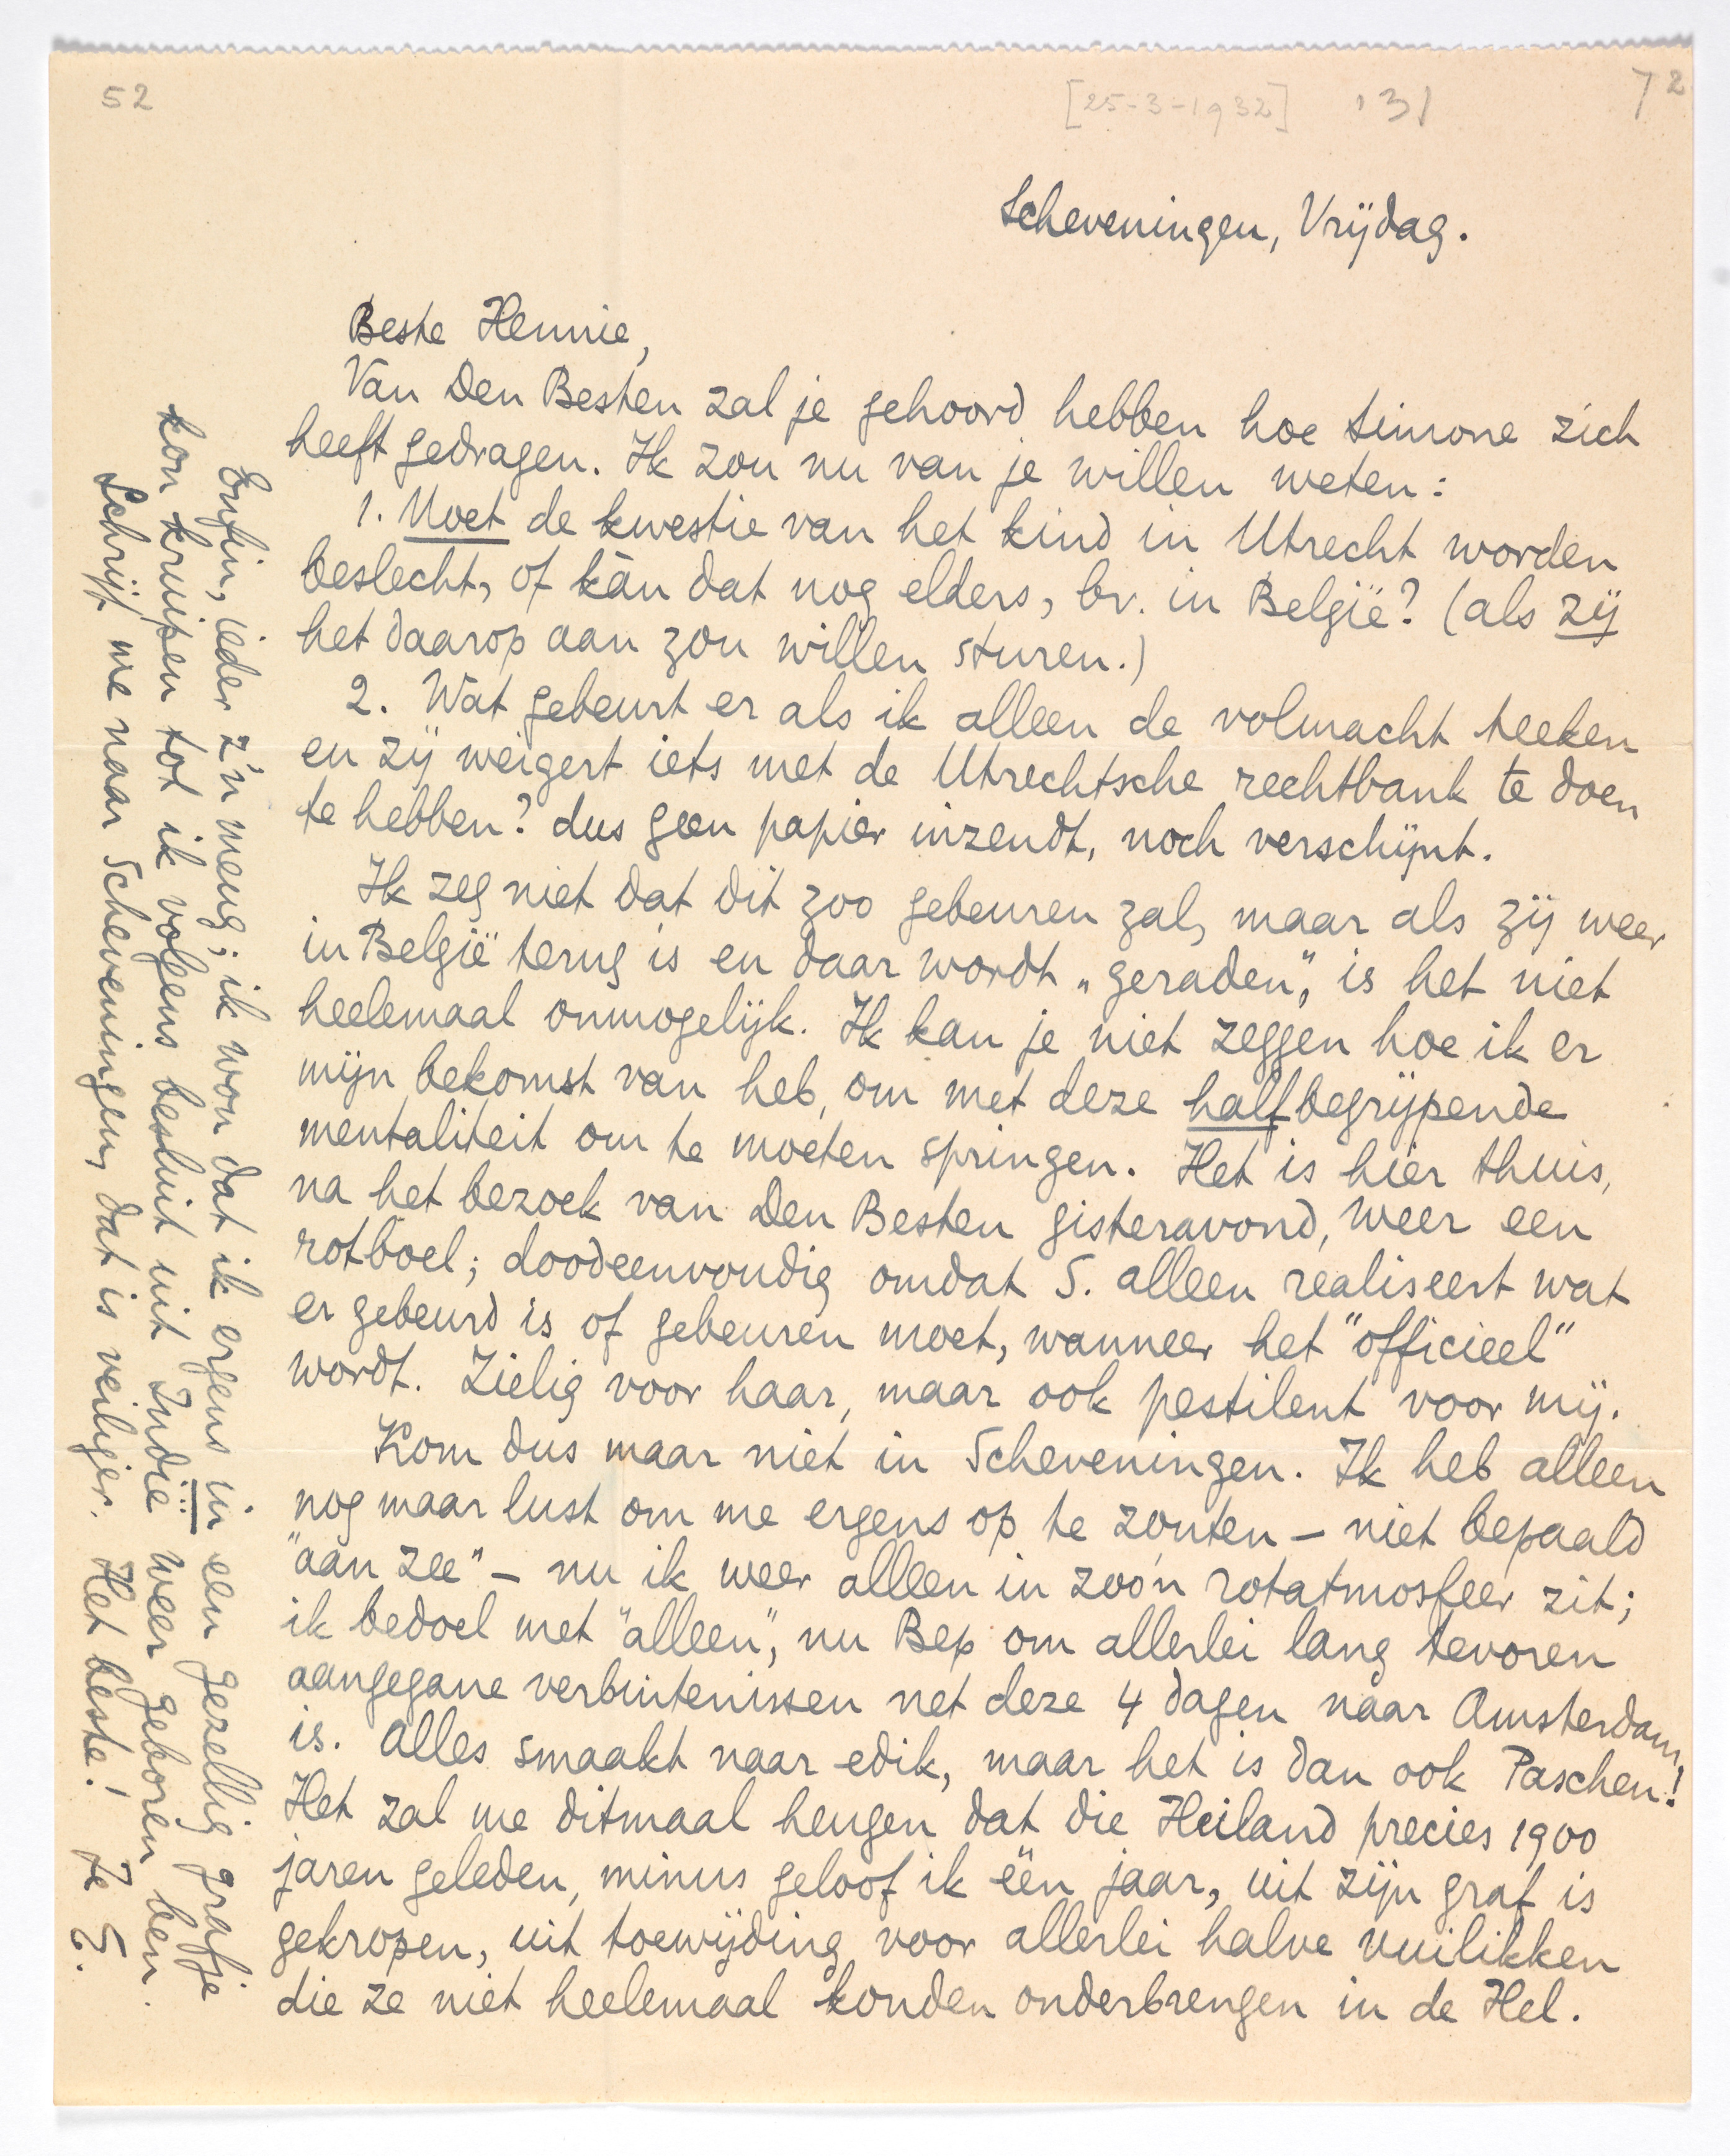 52
[25-3-1932] 131
72
Scheveningen, Vrijdag.
Beste Hennie,
Van Den Besten zal je gehoord hebben hoe Simone zich
heeft gedragen. Ik zou nu van je willen weten:
1. Moet de kwestie van het kind in Utrecht worden
beslecht, of kàn dat nog elders, bv. in België? (als zij
het daarop aan zou willen sturen.)
2. Wat gebeurt er als ik alleen de volmacht teeken
en zij weigert iets met de Utrechtsche rechtbank te doen
te hebben? dus geen papier inzendt, noch verschijnt.
Ik zeg niet dat dit zoo gebeuren zal, maar als zij weer
in België terug is en daar wordt „geraden”, is het niet
heelemaal onmogelijk. Ik kan je niet zeggen hoe ik er
mijn bekomst van heb, om met deze halfbegrijpende
mentaliteit om te moeten springen. Het is hier thuis,
na het bezoek van Den Besten gisteravond, weer een
rotboel; doodeenvoudig omdat S. alleen realiseert wat
er gebeurd is of gebeuren moet, wanneer het "officieel"
wordt. Zielig voor haar, maar ook pestilent voor mij.
Kom dus maar niet in Scheveningen. Ik heb alleen
nog maar lust om me ergens op te zouten - niet bepaald
"aan zee" - nu ik weer alleen in zoo'n rotatmosfeer zit;
ik bedoel met "alleen", nu Bep om allerlei lang tevoren
aangegane verbintenissen net deze 4 dagen naar Amsterdam
is. Alles smaakt naar edik, maar het is dan ook Paschen!
Het zal me ditmaal heugen dat die Heiland precies 1900
jaren geleden, minus geloof ik één jaar, uit zijn graf is
gekropen, uit toewijding voor allerlei halve vuilikken
die ze niet heelemaal konden onderbrengen in de Hel.
Enfin, ieder z'n meug; ik wou dat ik ergens in een gezellig grafje
kon kruipen tot ik volgens besluit uit Indië weer geboren ben.
Schrijf me naar Scheveningen, dat is veiliger. Het beste! Je E.